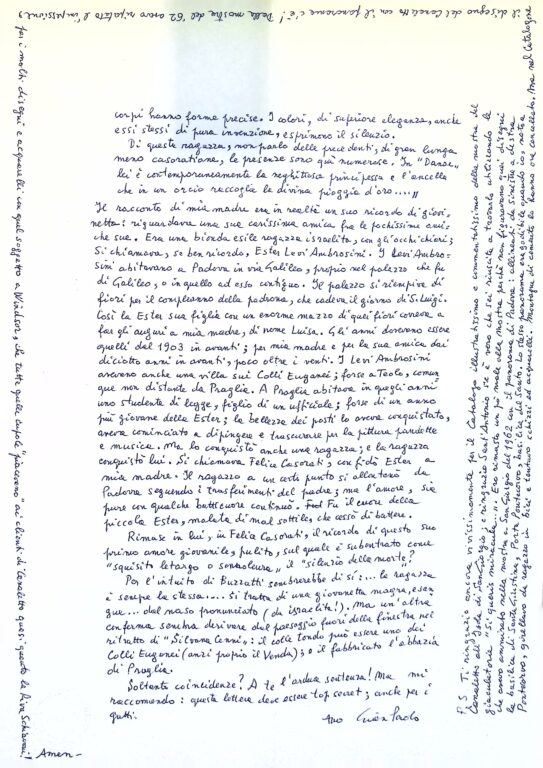 corpi hanno forme precise. I colori, di superiore eleganza, anche
essi stessi di pura invenzione, esprimono il silenzio.
Di questa ragazza, non parlo delle precedenti, di gran lunga
meno casoratiane, le presenze sono qui numerose. In "Danae"
lei è contemporaneamente la neghittosa principessa e l'ancella
che in un orcio raccoglie la divina pioggia d'oro....."
Il racconto di mia madre era in realtà un suo ricordo di giovi-
netta: riguardava una sua carissima amica fra le pochissime ami-
che sue. Era una bionda esile ragazza israelita, con gli occhi chiari;
si chiamava, se ben ricordo, Ester Levi Ambrosini. I Levi Ambro-
sini abitavano a Padova in via Galileo, proprio nel palazzo che fu
di Galileo, o in quello ad esso contiguo. Il palazzo si riempiva di
fiori per il compleanno della padrona, che cadeva il giorno di S. Luigi.
Così la Ester sua figlia con un enorme mazzo di quei fiori correva a
far gli auguri a mia madre, di nome Luisa. Gli anni dovevano essere
quelli dal 1903 in avanti; per mia madre e per la sua amica dai
diciotto anni in avanti, poco oltre i venti. I Levi Ambrosini
avevano anche una villa sui Colli Euganei; forse a Teolo, comun
que non distante da Praglia. A Praglia abitava in quegli anni
uno studente di legge, figlio di un ufficiale; forse di un anno
più giovane della Ester; la bellezza dei posti lo aveva conquistato,
aveva cominciato a dipingere e trascurare per la pittura pandette
e musica. Ma lo conquistò anche una ragazza; e la ragazza
conquistò lui. Si chiamava Felice Casorati, confidò Ester a
mia madre. Il ragazzo a un certo punto si allontanò da
Padova seguendo i trasferimenti del padre; ma l'amore, sia
pure con qualche batticuore continuò. Fu il cuore della
piccola Ester, malata di mal sottile, che cessò di battere.
Rimase in lui, in Felice Casorati, il ricordo di questo suo
primo amore giovanile, pulito, sul quale è subentrato come
"squisito letargo o sonnolenza", il "silenzio della morte"?
Per l'intuito di Buzzatti sembrerebbe di sì: "... la ragazza
è sempre la stessa.... si tratta di una giovanetta magra, esan
gue... dal naso pronunciato (da israelita!). Ma un'altra
conferma sembra derivare dal paesaggio fuori della finestra nel
ritratto di "Silvana Cenni": il colle tondo può essere uno dei
Colli Euganei (anzi proprio il Venda); e il fabbricato l'abbazia
di Praglia.
Soltanto coincidenze? A te l'ardua sentenza! Ma mi
raccomando: questa lettera deve essere top secret; anche per i
gatti.
tuo Gian Paolo
P.S. Ti ringrazio ancora vivissimamente per il Catalogo illustratissimo e commentatissimo della mostra del
Canaletto all'Isola di San Giorgio; e ringrazio Sant'Antonio se è vero che sei riuscita a trovarlo utilizzando la
giaculatoria "Si quaeris miracula...". Ero rimasto un po' male alla mostra perché non figuravano quei disegni
che avevo ammirato nella mostra a San Giorgio del 1962 con il panorama di Padova: allineati da sinistra a destra
la basilica di Santa Giustina, Porta Pontecorvo, basilica del Santo. Lo stesso panorama godibile quando io, nato a
Pontecorvo, girellavo da ragazzo in bici e tentavo schizzi ed acquarelli. Muraglie di cemento lo hanno ora cancellato. Ma nel Catalogone
il disegno del Canaletto con il panorama c'è! Dalla mostra del '62 avevo riportato l'impressione,
per i molti disegni e acquarelli in quel soggetto a Windsor, che tutte quelle cupole "piacevano" ai clienti di Canaletto quasi quanto la Riva Schiavoni!
Amen-